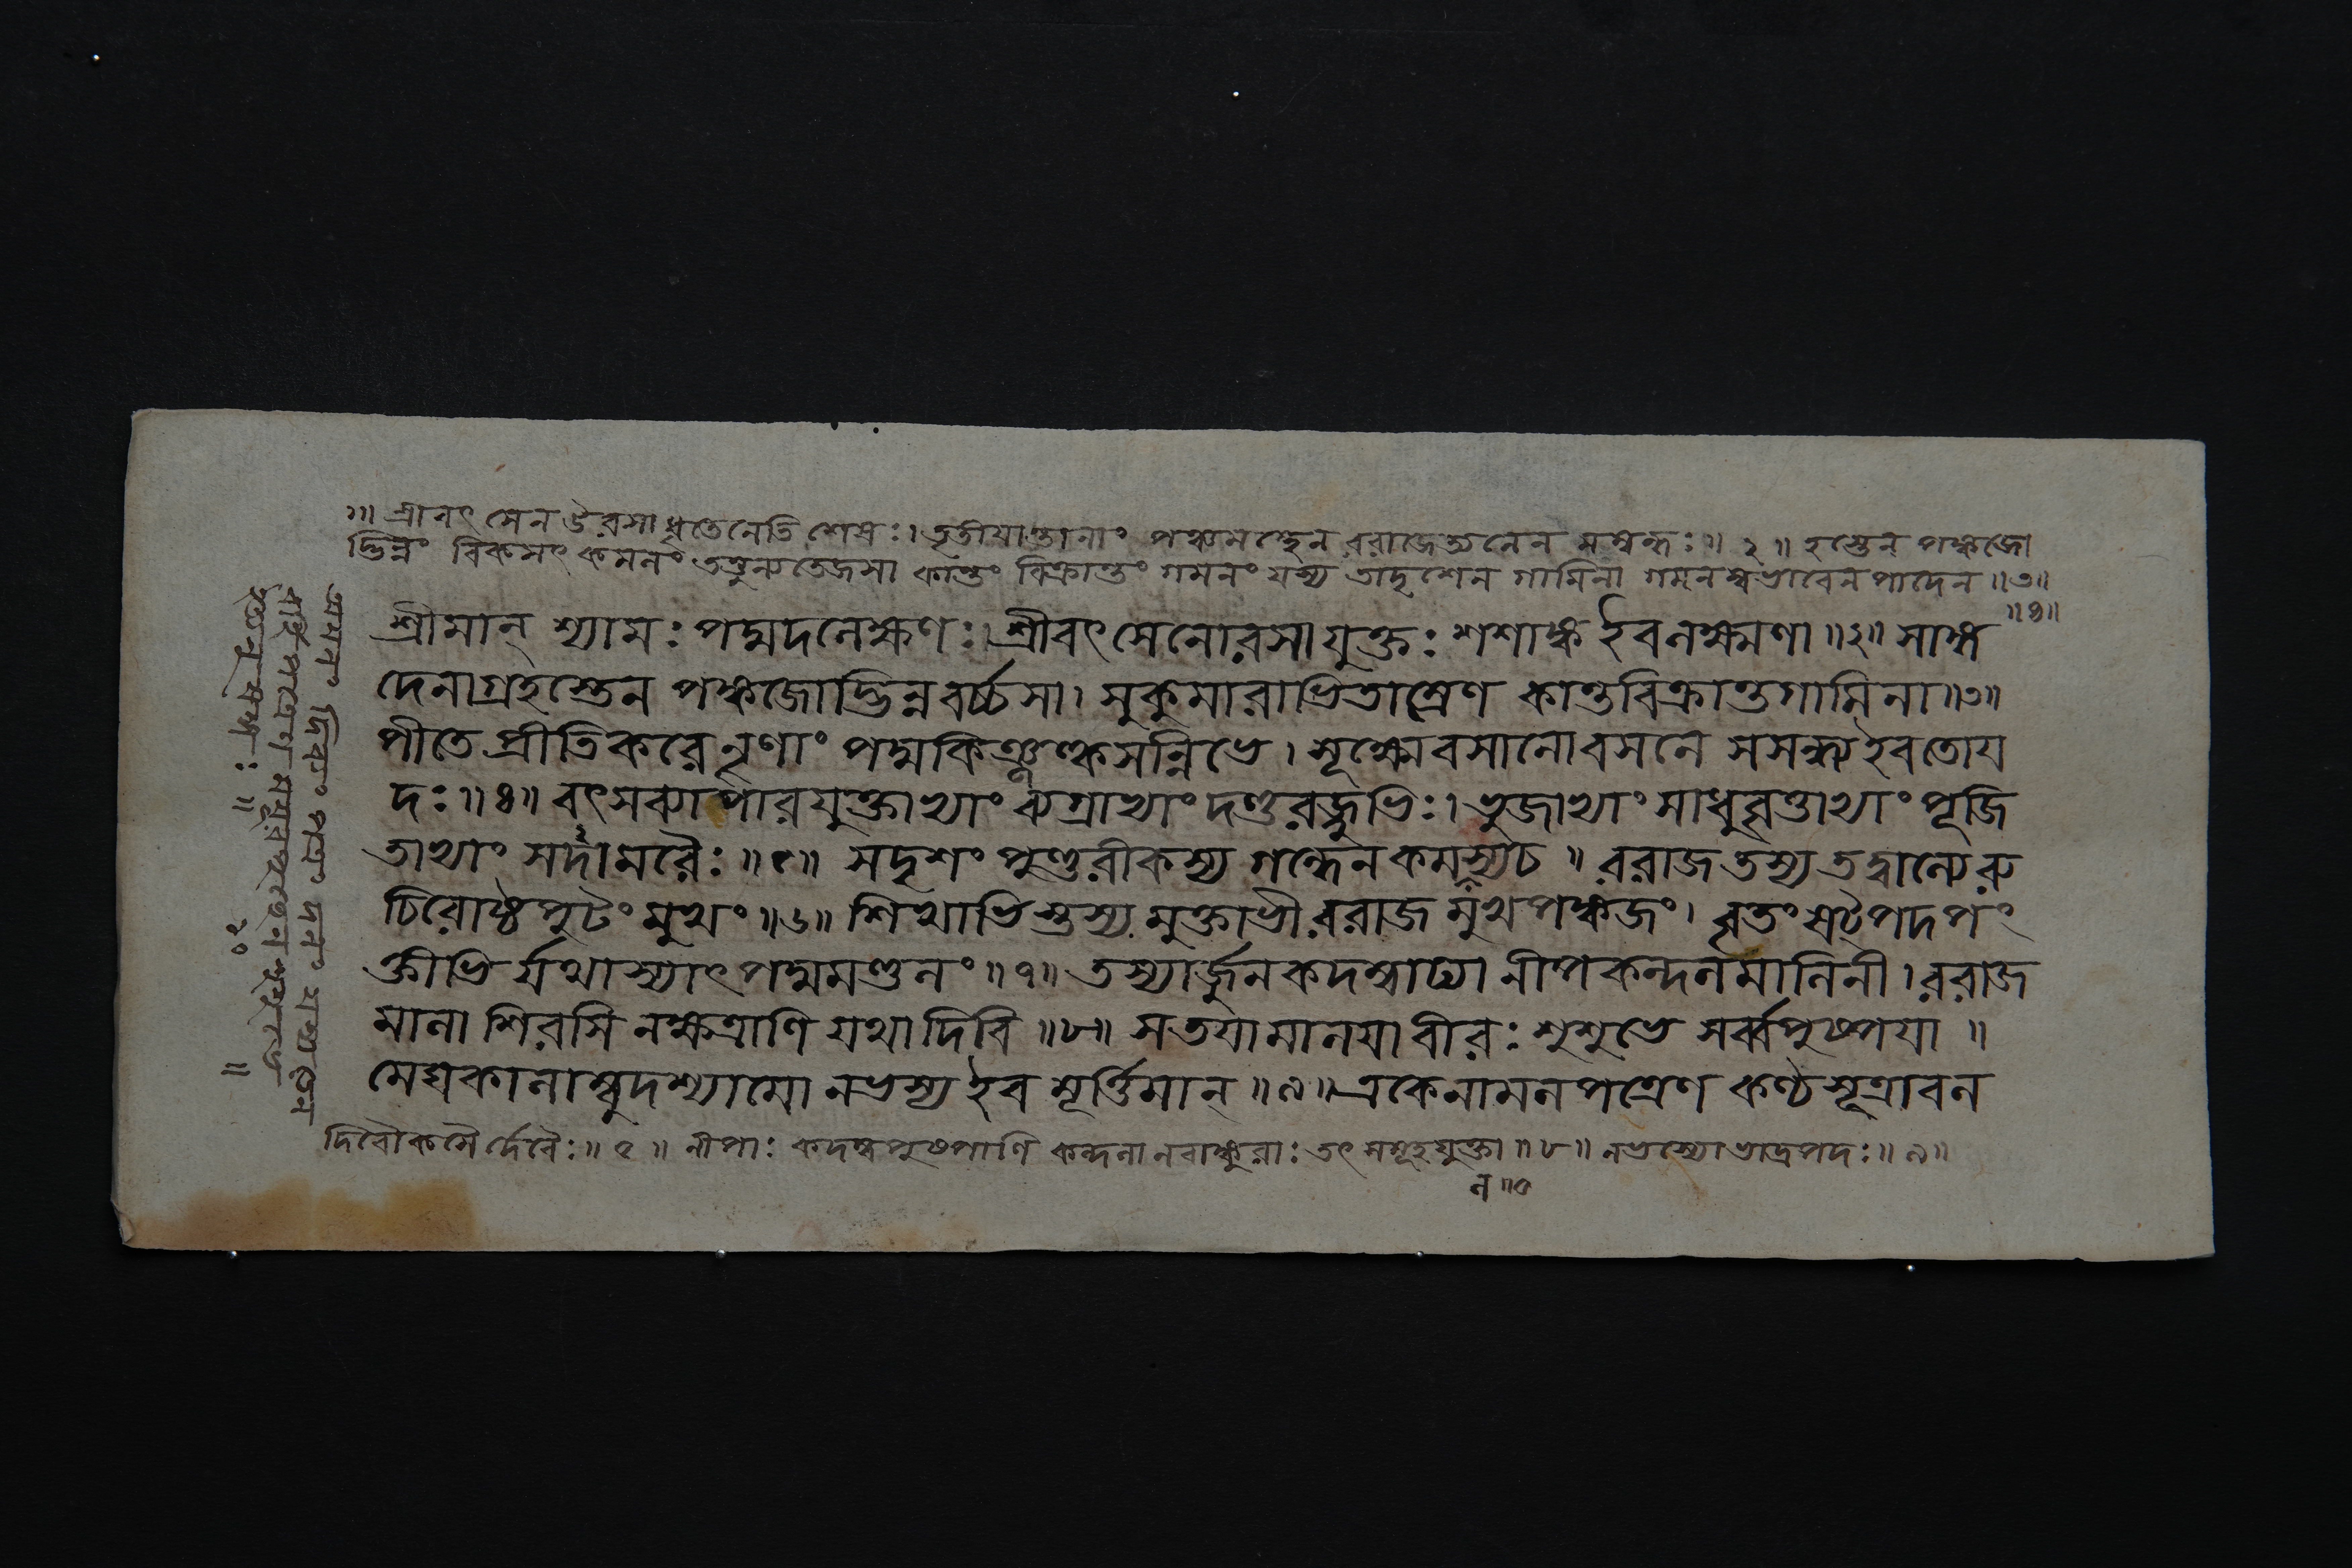 ॥ শ্রীবৎসেন উরসা ধৃতেনেতি শেষঃ। তৃতীয়ান্তানাং পঞ্চমস্থেন ররাজেত্যনেন সম্বন্ধঃ॥ ২॥ হস্তেন পঙ্কজো
দ্ভিন্নং বিকসৎ কমলং তত্তুল্যতেজসা কান্তং বিক্রান্তং গমনং যস্য তাদৃশেন গামিনা গমনস্বভাবেন পাদেন॥৩॥
শ্রীমান্ শ্যামঃ পদ্মদলেক্ষণঃ। শ্রীবৎসেনোরসা যুক্তঃ শশাঙ্ক ইব লক্ষ্মণা॥২॥ সাঙ্গ ॥৪॥
দেনাগ্রহস্তেন পঙ্কজোদ্ভিন্নবর্চ্চসা। সুকুমারাভিতাম্রেণ কান্তবিক্রান্তগামিনা॥৩॥
পীতে প্রীতিকরে নৃণাং পদ্মকিঞ্জল্কসন্নিভে। সূক্ষ্মে বসানো বসনে সসন্ধ্য ইব তোয়
দঃ॥৪॥ বৎসব্যাপারযুক্তাভ্যাং ব্যগ্রাভ্যাং দণ্ডরজ্জুভিঃ। ভুজাভ্যাং সাধুবৃত্তাভ্যাং পূজি
তাভ্যাং সদামরৈঃ॥৫॥ সদৃশং পুণ্ডরীকস্য গন্ধেন কমলস্য চ॥ ররাজ তস্য তদ্বাল্যে রু
চিরোষ্ঠপুটং মুখং॥৬॥ শিখাভিস্তস্য মুক্তাভী ররাজ মুখপঙ্কজং। বৃতং ষট্পদপং
ক্তীভি র্যথা স্যাৎ পদ্মমণ্ডলং॥৭॥ তস্যার্জুনকদম্বাঢ্যা নীপকন্দলমালিনী। ররাজ
মালা শিরসি নক্ষত্রাণি যথা দিবি॥৮॥ স তয়া মালয়া বীরঃ শুশুভে সর্ব্বপুষ্পয়া॥
মেঘকালাম্বুদশ্যামো নভস্য ইব মূর্ত্তিমান্॥৯॥ একেনামলপত্রেণ কণ্ঠসূত্রাবল
দিবৌকসৈর্দেবৈঃ॥ ৫॥ নীপাঃ কদম্বপুষ্পাণি কন্দলা নবাঙ্কুরাঃ তৎসমূহযুক্তা॥৮॥ নভস্যো ভাদ্রপদঃ॥৯॥
অমলং দিব্যং পত্রং দলং যস্য তেন